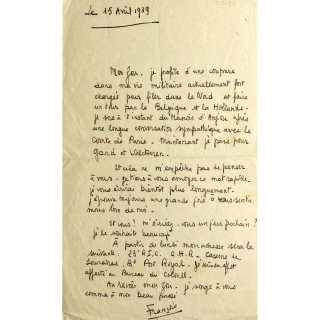 Le 15 Avril 1939
Mon Zou. je profite d'une coupure
dans ma vie militaire actuellement fort
chargée pour filer dans le Nord et faire
un tour par la Belgique et la Hollande.
je sors à l'instant du Manoir d'Anjou après
une longue conversation sympathique avec le
Comte de Paris. Maintenant je pars pour
Gand et
Et cela ne m'empêche pas de penser
à vous. je tiens à vous envoyer ce mot rapide,
je vous écrirai bientôt plus longuement.
j'éprouve toujours une grande joie à vous sentir
moins loin de moi.
Et vous! m'écrirez-vous un jour prochain?
je le souhaite beaucoup
À partir de lundi mon adresse sera la
suivante: 23e R.I.C. C.H.R. Caserne de
Lourcine. Bd Port Royal. je suis en effet
affecté au Bureau du Colonel.
Au revoir mon Zou. je songe à vous
comme à mon beau
François